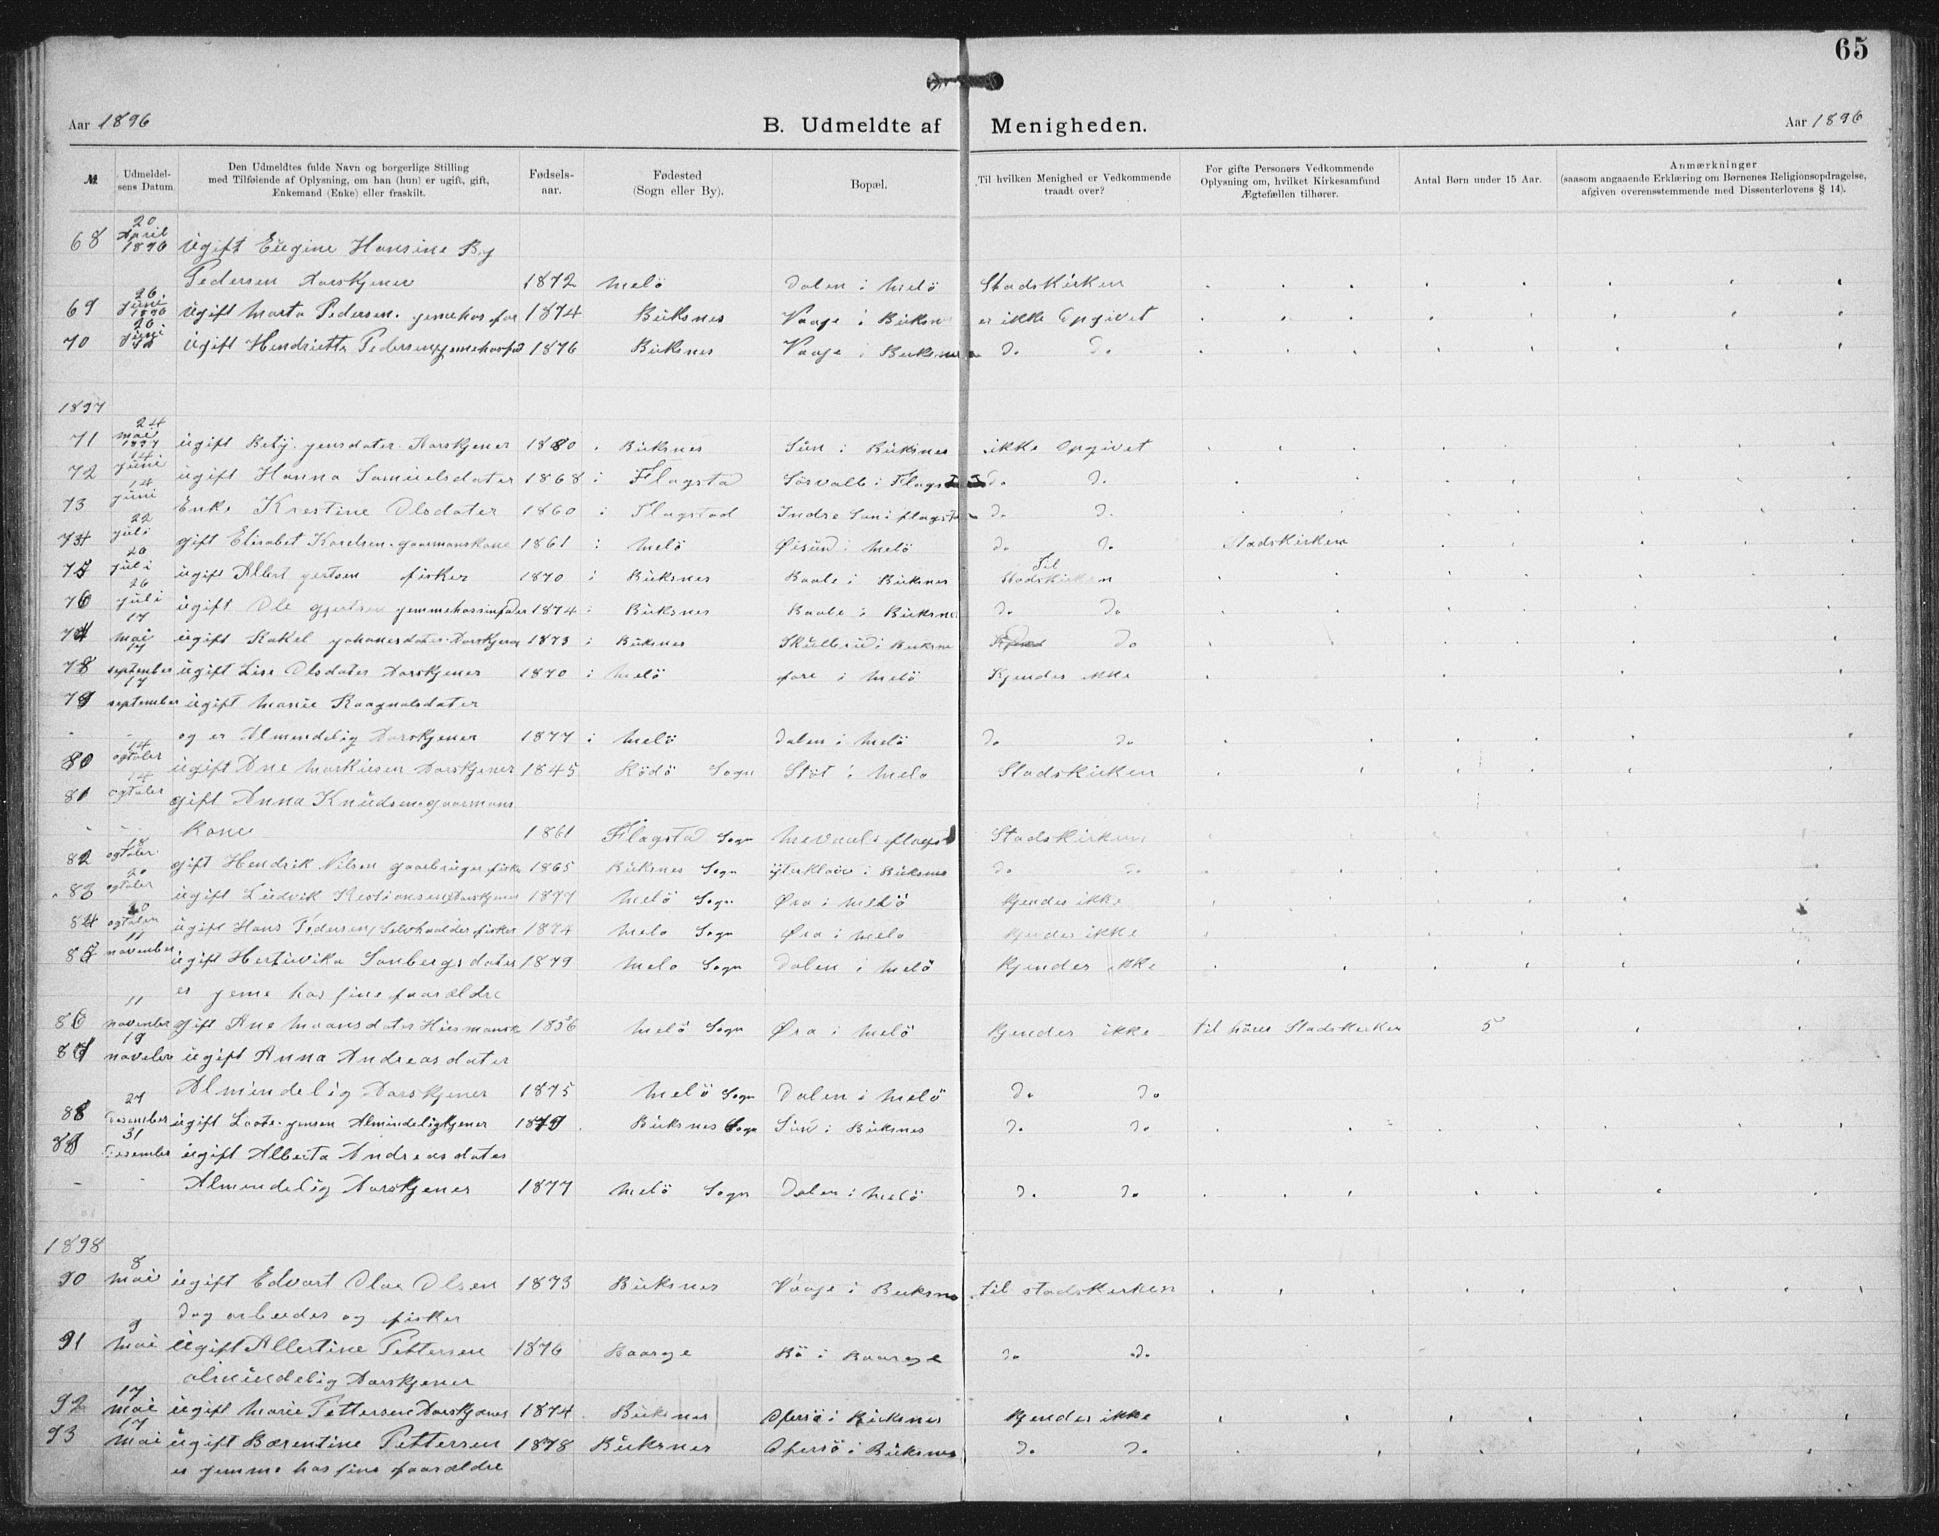 65
Aar 1896
B. Udmeldte af Menigheden.
Aar 1896
№
Udmeldelsens Datum
Den Udmeldtes fulde Navn og borgerlige Stilling med Tilføiende af Oplysning, om han (hun) er ugift, gift, Enkemand (Enke) eller fraskilt.
Fødselsaar.
Fødested (Sogn eller By).
Bopæl.
Til hvilken Menighed er Vedkommende traadt over?
For gifte Personers Vedkommende Oplysning om, hvilket Kirkesamfund Ægtefællen tilhører.
Antal Børn under 15 Aar.
Anmærkninger (saasom angaaende Erklæring om Børnenes Religionsopdragelse, afgiven overensstemmende med Dissenterlovens § 14).
68 20 April 1896 ugift Eugine Hansine By
Pedersen Aarskjener 1872 Melö Dalen i Melö Stadskirken
69 26 Juni 1896 ugift Marta Pedersen. jemehos far 1874 Büksnes Vaaje i Büksn er ikke Opgivet
70 26 Juni ugift Hendrietta Pedersen 1876 Büksnes Vaaje i Büksnes do do
1897
71 24 mai 1897 ugift Betÿ jensdater Aarskjener 1880 Büksnes Sün i Büksnes ikke Opgivet
72 14 juni ugift Hanna Samuelsdater 1868 i Flagsta Sörvalle i Flags do do
73 14 juni Enke Krestine Olsdater 1860 i Flagstad Indre Sun i flagsta do do
74 22 juli gift Elisabet Karelsen gaarmanskone 1861 i Melö Öisund i Melö do do Stadskirken
75 20 juli ugift Albert gertsen fisker 1870 i Büksnes Baale i Büksnes Til Stadskirken
76 26 juli ugift Ole gjertsen jemmehossinfader 1874 i Büksnes Baale i Büksnes do do
77 17 mai ugift Rakel johanesdater Aarskjener 1873 i Büksnes Skülbrü i Büksne do
78 september ugift Lise Olsdater Aarskjener 1870 i Melö fore i Melö Kjendes ikke
79 17 september ugift Marie Raagnalsdater
- - og er Almindelig Aarskjener 1877 i Melö Dalen i Melö do do
80 14 ogtober ugift Ane Markusen Aarskjener 1845 Rödö Sogn Stöt i Melö Stadskirken
81 14 ogtober gift Anna Knüdsen gaarmans
- - kone 1861 Flagsta Sogn flagst Stadskirken
82 18 ogtober gift Hendrik Nilsen gaarbruger fisker 1865 Büksnes Sogn ÿterklave i Büksnes do do
83 20 ogtober ugift Lüdvik Kristiansen Aarskjener 1877 Melö Sogn Öra i Melö kjendes ikke
84 20 ogtober ugift Hans Pedersen Selvhaalder fisker 1874 Melö Sogn Öra i Melö kjendes ikke
85 11 november ugift Hertüvika Sanbergsdater 1879 Melö Sogn Dalen i Melö kjendes ikke
er jeme hos sine faarældre
86 11 november gift Ane Maansdater Hüsmansk 1856 Melö Sogn Öra i Melö kjendes ikke til hörer Stadskerken 5
87 19 noveber ugift Anna Andreasdater
Almindelig Aarskjener 1875 Melö Sogn Dalen i Melö do do
88 27 Desember ugift Laate jensen Almindeligkjener 1879 Büksnes Sogn Sün i Büksnes do do
89 31 Desember ugift Alberta Andreasdater
- - Almindelig Aarskjener 1877 Melö Sogn Dalen i Melö do do
1898
90 8 mai ugift Edvart Olae Olsen 1873 Büksnes Vaaje i Büksne til stadskerken
dag arbeider og fisker
91 9 mai ugift Albertine Pettersen 1876 Baarge Bö i Baarge do do
almindelig Aarskjener
92 17 mai ugift Marie Pettersen Aarskjener 1874 Büksnes Ofersö i Büksnes kjendes ikke
93 17 mai ugift Bærentine Pettersen 1878 Büksnes Ofersö i Büksnes do do
er jemme hos sine faarældre